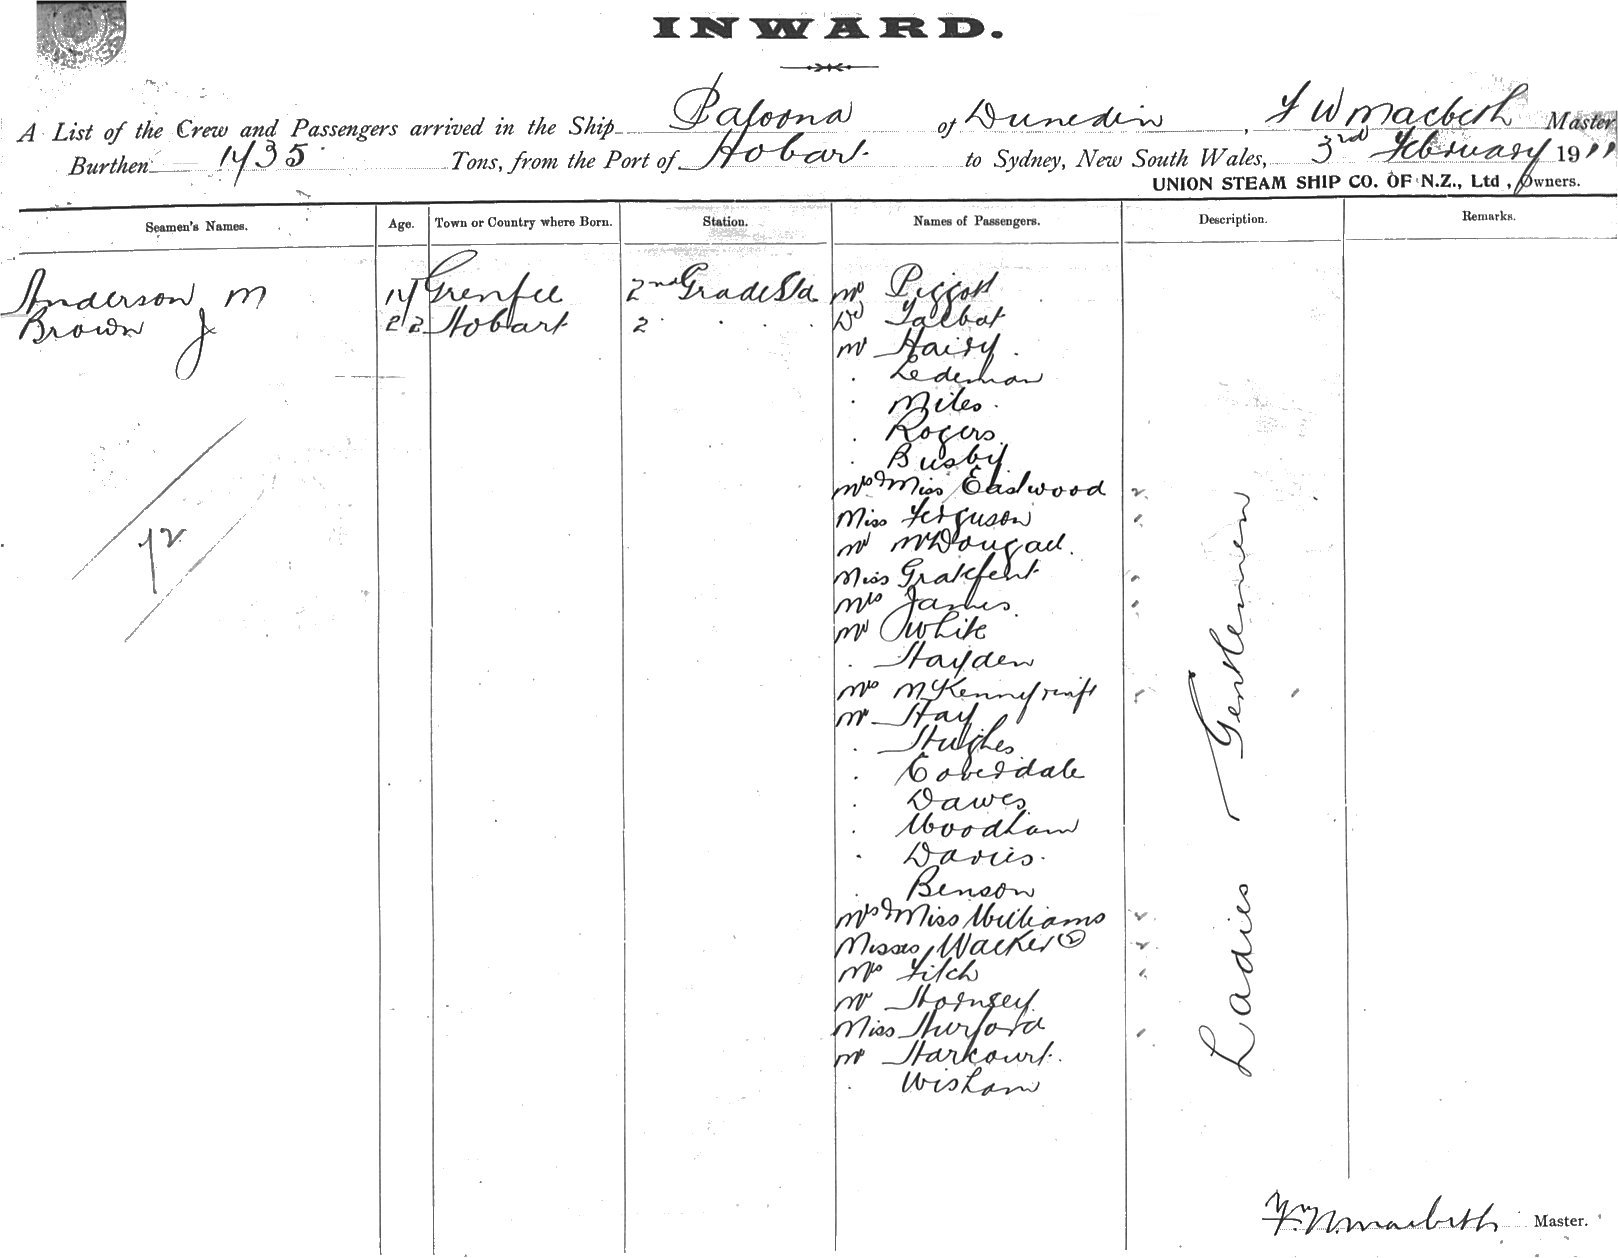 INWARD.
A List of the Crew and Passengers arrived in the Ship Paloona of Dunedin, F W Macbeth Master
Burthen 1435 Tons, from the Port of Hobart to Sydney, New South Wales, 3rd February 1911
UNION STEAM SHIP CO. OF N.Z., Ltd, Owners.
Seamen's Names. Age. Town or Country where Born. Station. Names of Passengers. Description. Remarks.
Anderson M Grenfell 2nd Grade Std Mr Piggott
Brown J 22 Hobart 2 . . . . Dr Talbot
Mr Hairy
. Ledeman
. Miles.
. Rogers
. Busby
Mrs & Miss Eastwood 2
Miss Ferguson
Mr McDougall.
Miss
Mrs James
Mr White
. Hayden
Mrs
Mr Hay
. Hughes
. Coverdale
. Dawes
. Woodham
. Davies.
. Benson
Mrs & Miss Williams 2
Misses Walker (2) 2
Mrs Fitch
Mr Hornsey
Miss Hurford
Mr Harcourt.
. Wisham
Ladies Gentlemen
12
F. W. Macbeth Master.